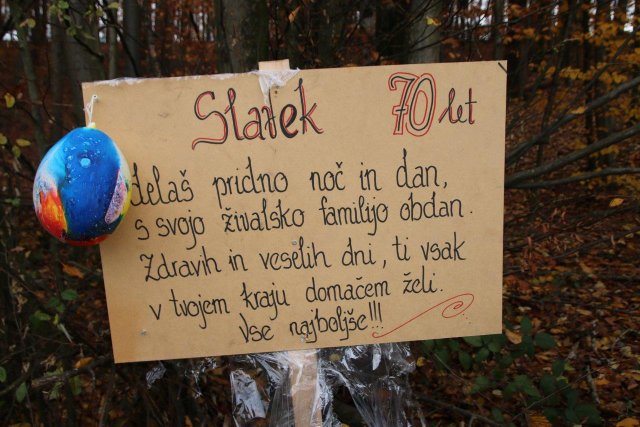 Slavek 70 let
delaš pridno noč in dan,
s svojo živalsko familijo obdan.
Zdravih in veselih dni, ti vsak
v tvojem kraju domačem želi.
Vse najboljše!!!